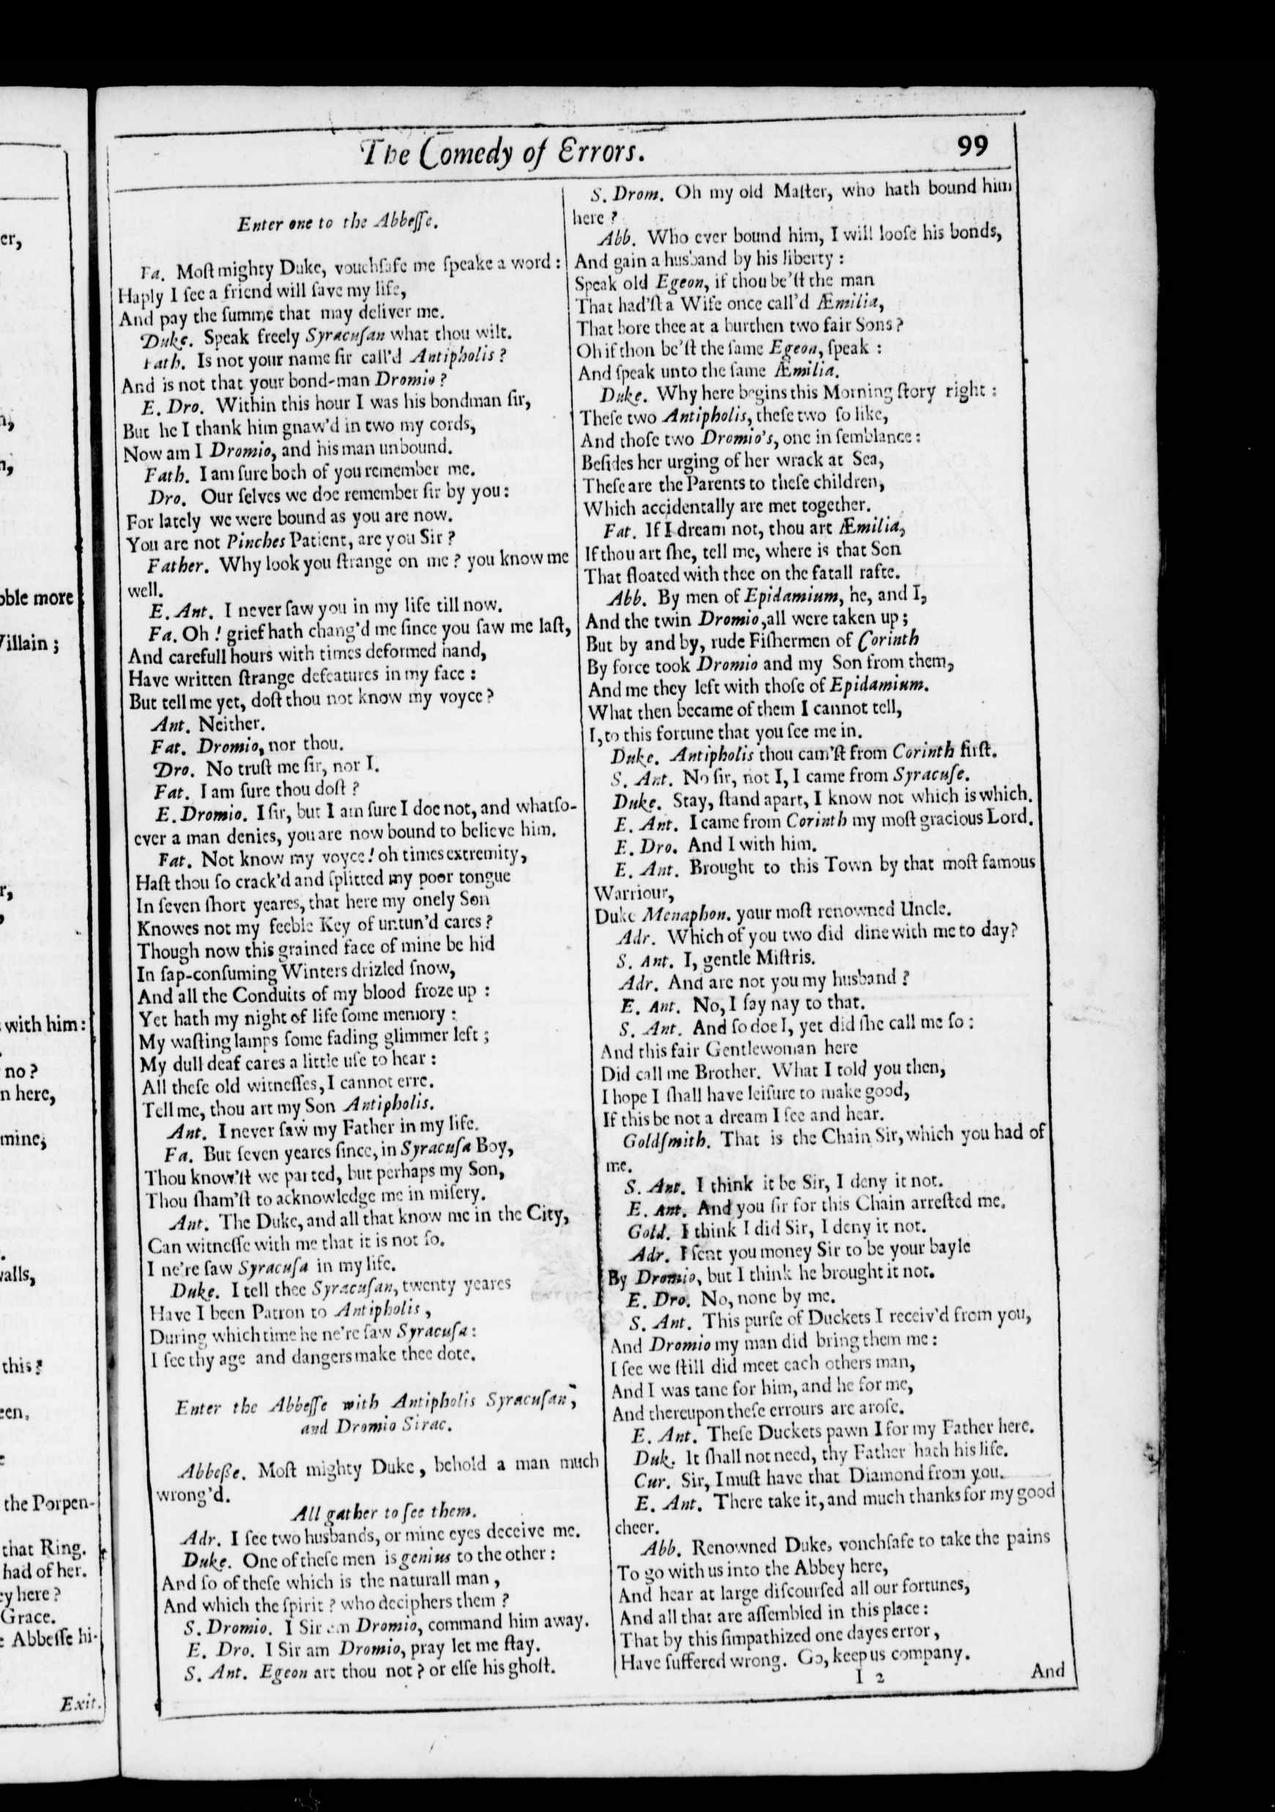 er,
n,
n,
oble more
Villain ;
r,
,
with him :
no ?
n here,
mine;
.
valls,
this ?
een.
e
the Porpen-
that Ring.
had of her.
ey here ?
Grace.
e Abbeſſe hi-
Exit.
The Comedy of Errors. 99
Enter one to the Abbeſſe.
Fa. Moſt mighty Duke, vouchſafe me ſpeake a word :
Haply I ſee a friend will ſave my life,
And pay the ſumme that may deliver me.
Duke. Speak freely Syracuſan what thou wilt.
Fath. Is not your name ſir call'd Antipholis ?
And is not that your bond-man Dromio ?
E. Dro. Within this hour I was his bondman ſir,
But he I thank him gnaw'd in two my cords,
Now am I Dromio, and his man unbound.
Fath. I am ſure both of you remember me.
Dro. Our ſelves we doe remember ſir by you :
For lately we were bound as you are now.
You are not Pinches Patient, are you Sir ?
Father. Why look you ſtrange on me ? you know me
well.
E. Ant. I never ſaw you in my life till now.
Fa. Oh ! grief hath chang'd me ſince you ſaw me laſt,
And carefull hours with times deformed hand,
Have written ſtrange defeatures in my face :
But tell me yet, doſt thou not know my voyce ?
Ant. Neither.
Fat. Dromio, nor thou.
Dro. No truſt me ſir, nor I.
Fat. I am ſure thou doſt ?
E. Dromio. I ſir, but I am ſure I doe not, and whatſo-
ever a man denies, you are now bound to believe him.
Fat. Not know my voyce ! oh times extremity,
Haſt thou ſo crack'd and ſplitted my poor tongue
In ſeven ſhort yeares, that here my onely Son
Knowes not my feeble Key of untun'd cares ?
Though now this grained face of mine be hid
In ſap-conſuming Winters drizled ſnow,
And all the Conduits of my blood froze up :
Yet hath my night of life ſome memory :
My waſting lamps ſome fading glimmer left ;
My dull deaf eares a little uſe to hear :
All theſe old witneſſes, I cannot erre.
Tell me, thou art my Son Antipholis.
Ant. I never ſaw my Father in my life.
Fa. But ſeven yeares ſince, in Syracuſa Boy,
Thou know'ſt we parted, but perhaps my Son,
Thou ſham'ſt to acknowledge me in miſery.
Ant. The Duke, and all that know me in the City,
Can witneſſe with me that it is not ſo.
I ne're ſaw Syracuſa in my life.
Duke. I tell thee Syracuſan, twenty yeares
Have I been Patron to Antipholis ,
During which time he ne're ſaw Syracuſa :
I ſee thy age and dangers make thee dote.
Enter the Abbeſſe with Antipholis Syracuſan,
and Dromio Sirac.
Abbeße. Moſt mighty Duke , behold a man much
wrong'd.
All gather to ſee them.
Adr. I ſee two husbands, or mine eyes deceive me.
Duke. One of theſe men is genius to the other :
And ſo of theſe which is the naturall man ,
And which the ſpirit ? who deciphers them ?
S. Dromio. I Sir am Dromio, command him away.
E. Dro. I Sir am Dromio, pray let me ſtay.
S. Ant. Egeon art thou not ? or elſe his ghoſt.
S. Drom. Oh my old Maſter, who hath bound him
here ?
Abb. Who ever bound him, I will looſe his bonds,
And gain a husband by his liberty :
Speak old Egeon, if thou be'ſt the man
That had'ſt a Wife once call'd Æmilia,
That bore thee at a burthen two fair Sons ?
Oh if thon be'ſt the ſame Egeon, ſpeak :
And ſpeak unto the ſame Æmilia.
Duke. Why here begins this Morning ſtory right :
Theſe two Antipholis, theſe two ſo like,
And thoſe two Dromio's, one in ſemblance :
Beſides her urging of her wrack at Sea,
Theſe are the Parents to theſe children,
Which accidentally are met together.
Fat. If I dream not, thou art Æmilia,
If thou art ſhe, tell me, where is that Son
That floated with thee on the fatall rafte.
Abb. By men of Epidamium, he, and I,
And the twin Dromio, all were taken up ;
But by and by, rude Fiſhermen of Corinth
By force took Dromio and my Son from them,
And me they left with thoſe of Epidamium.
What then became of them I cannot tell,
I, to this fortune that you ſee me in.
Duke. Antipholis thou cam'ſt from Corinth firſt.
S. Ant. No ſir, not I, I came from Syracuſe.
Duke. Stay, ſtand apart, I know not which is which.
E. Ant. I came from Corinth my moſt gracious Lord.
E. Dro. And I with him.
E. Ant. Brought to this Town by that moſt famous
Warriour,
Duke Menaphon. your moſt renowned Uncle.
Adr. Which of you two did dine with me to day ?
S. Ant. I, gentle Miſtris.
Adr. And are not you my husband ?
E. Ant. No, I ſay nay to that.
S. Ant. And ſo doe I, yet did ſhe call me ſo :
And this fair Gentlewoman here
Did call me Brother. What I told you then,
I hope I ſhall have leiſure to make good,
If this be not a dream I ſee and hear.
Goldſmith. That is the Chain Sir, which you had of
me.
S. Ant. I think it be Sir, I deny it not.
E. Ant. And you ſir for this Chain arreſted me.
Gold. I think I did Sir, I deny it not.
Adr. I ſent you money Sir to be your bayle
By Dromio, but I think he brought it not.
E. Dro. No, none by me.
S. Ant. This purſe of Duckets I receiv'd from you,
And Dromio my man did bring them me :
I ſee we ſtill did meet each others man,
And I was tane for him, and he for me,
And thereupon theſe errours are aroſe.
E. Ant. Theſe Duckets pawn I for my Father here.
Duk. It ſhall not need, thy Father hath his life.
Cur. Sir, I muſt have that Diamond from you.
E. Ant. There take it, and much thanks for my good
cheer.
Abb. Renowned Duke, vonchſafe to take the pains
To go with us into the Abbey here,
And hear at large diſcourſed all our fortunes,
And all that are aſſembled in this place :
That by this ſimpathized one dayes error ,
Have ſuffered wrong. Go, keep us company.
I 2 And